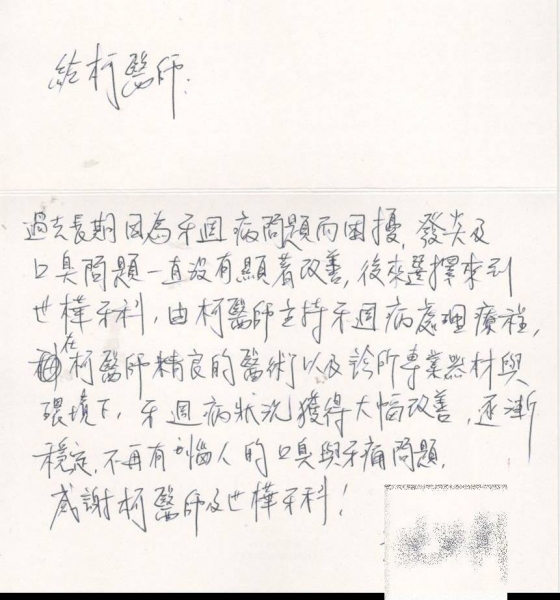 給柯醫師:
過去長期因為牙週病問題而困擾，發炎及
口臭問題一直沒有顯著改善，後來選擇來到
世樺牙科，由柯醫師主持牙週病處理療程，
在柯醫師精良的醫術以及診所專業器材與
環境下，牙週病狀況獲得大幅改善，逐漸
穩定，不再有惱人的口臭與牙痛問題，
感謝柯醫師及世樺牙科！